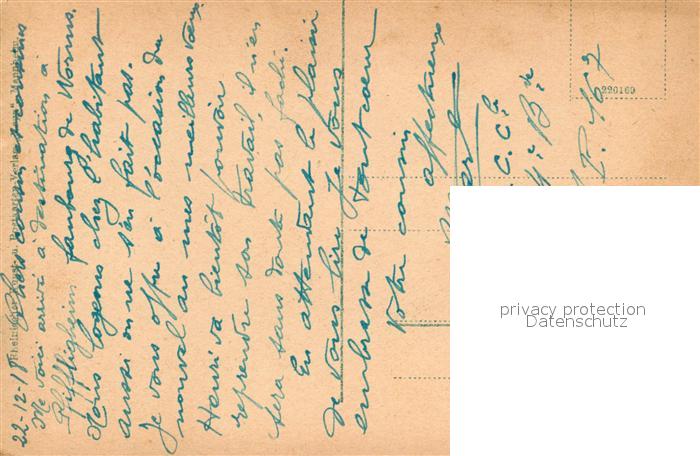 22-12-18 Chers cousin et cousines
Me voici arrivé à destination à
Pfiffligheim faubourg de Worms.
Nous logeons chez l'habitant
aussi on ne s'en fait pas.
Je vous offre à l'occasion du
nouvel an mes meilleurs vœux
Henri va bientôt pouvoir
reprendre son travail, il n'en
sera sans doute pas fâché.
En attendant le plaisir
de vous lire je vous
embrasse de tout cœur
Votre cousin
affectueux
C.C.
S.P. 167
220160
privacy protection
Datenschutz